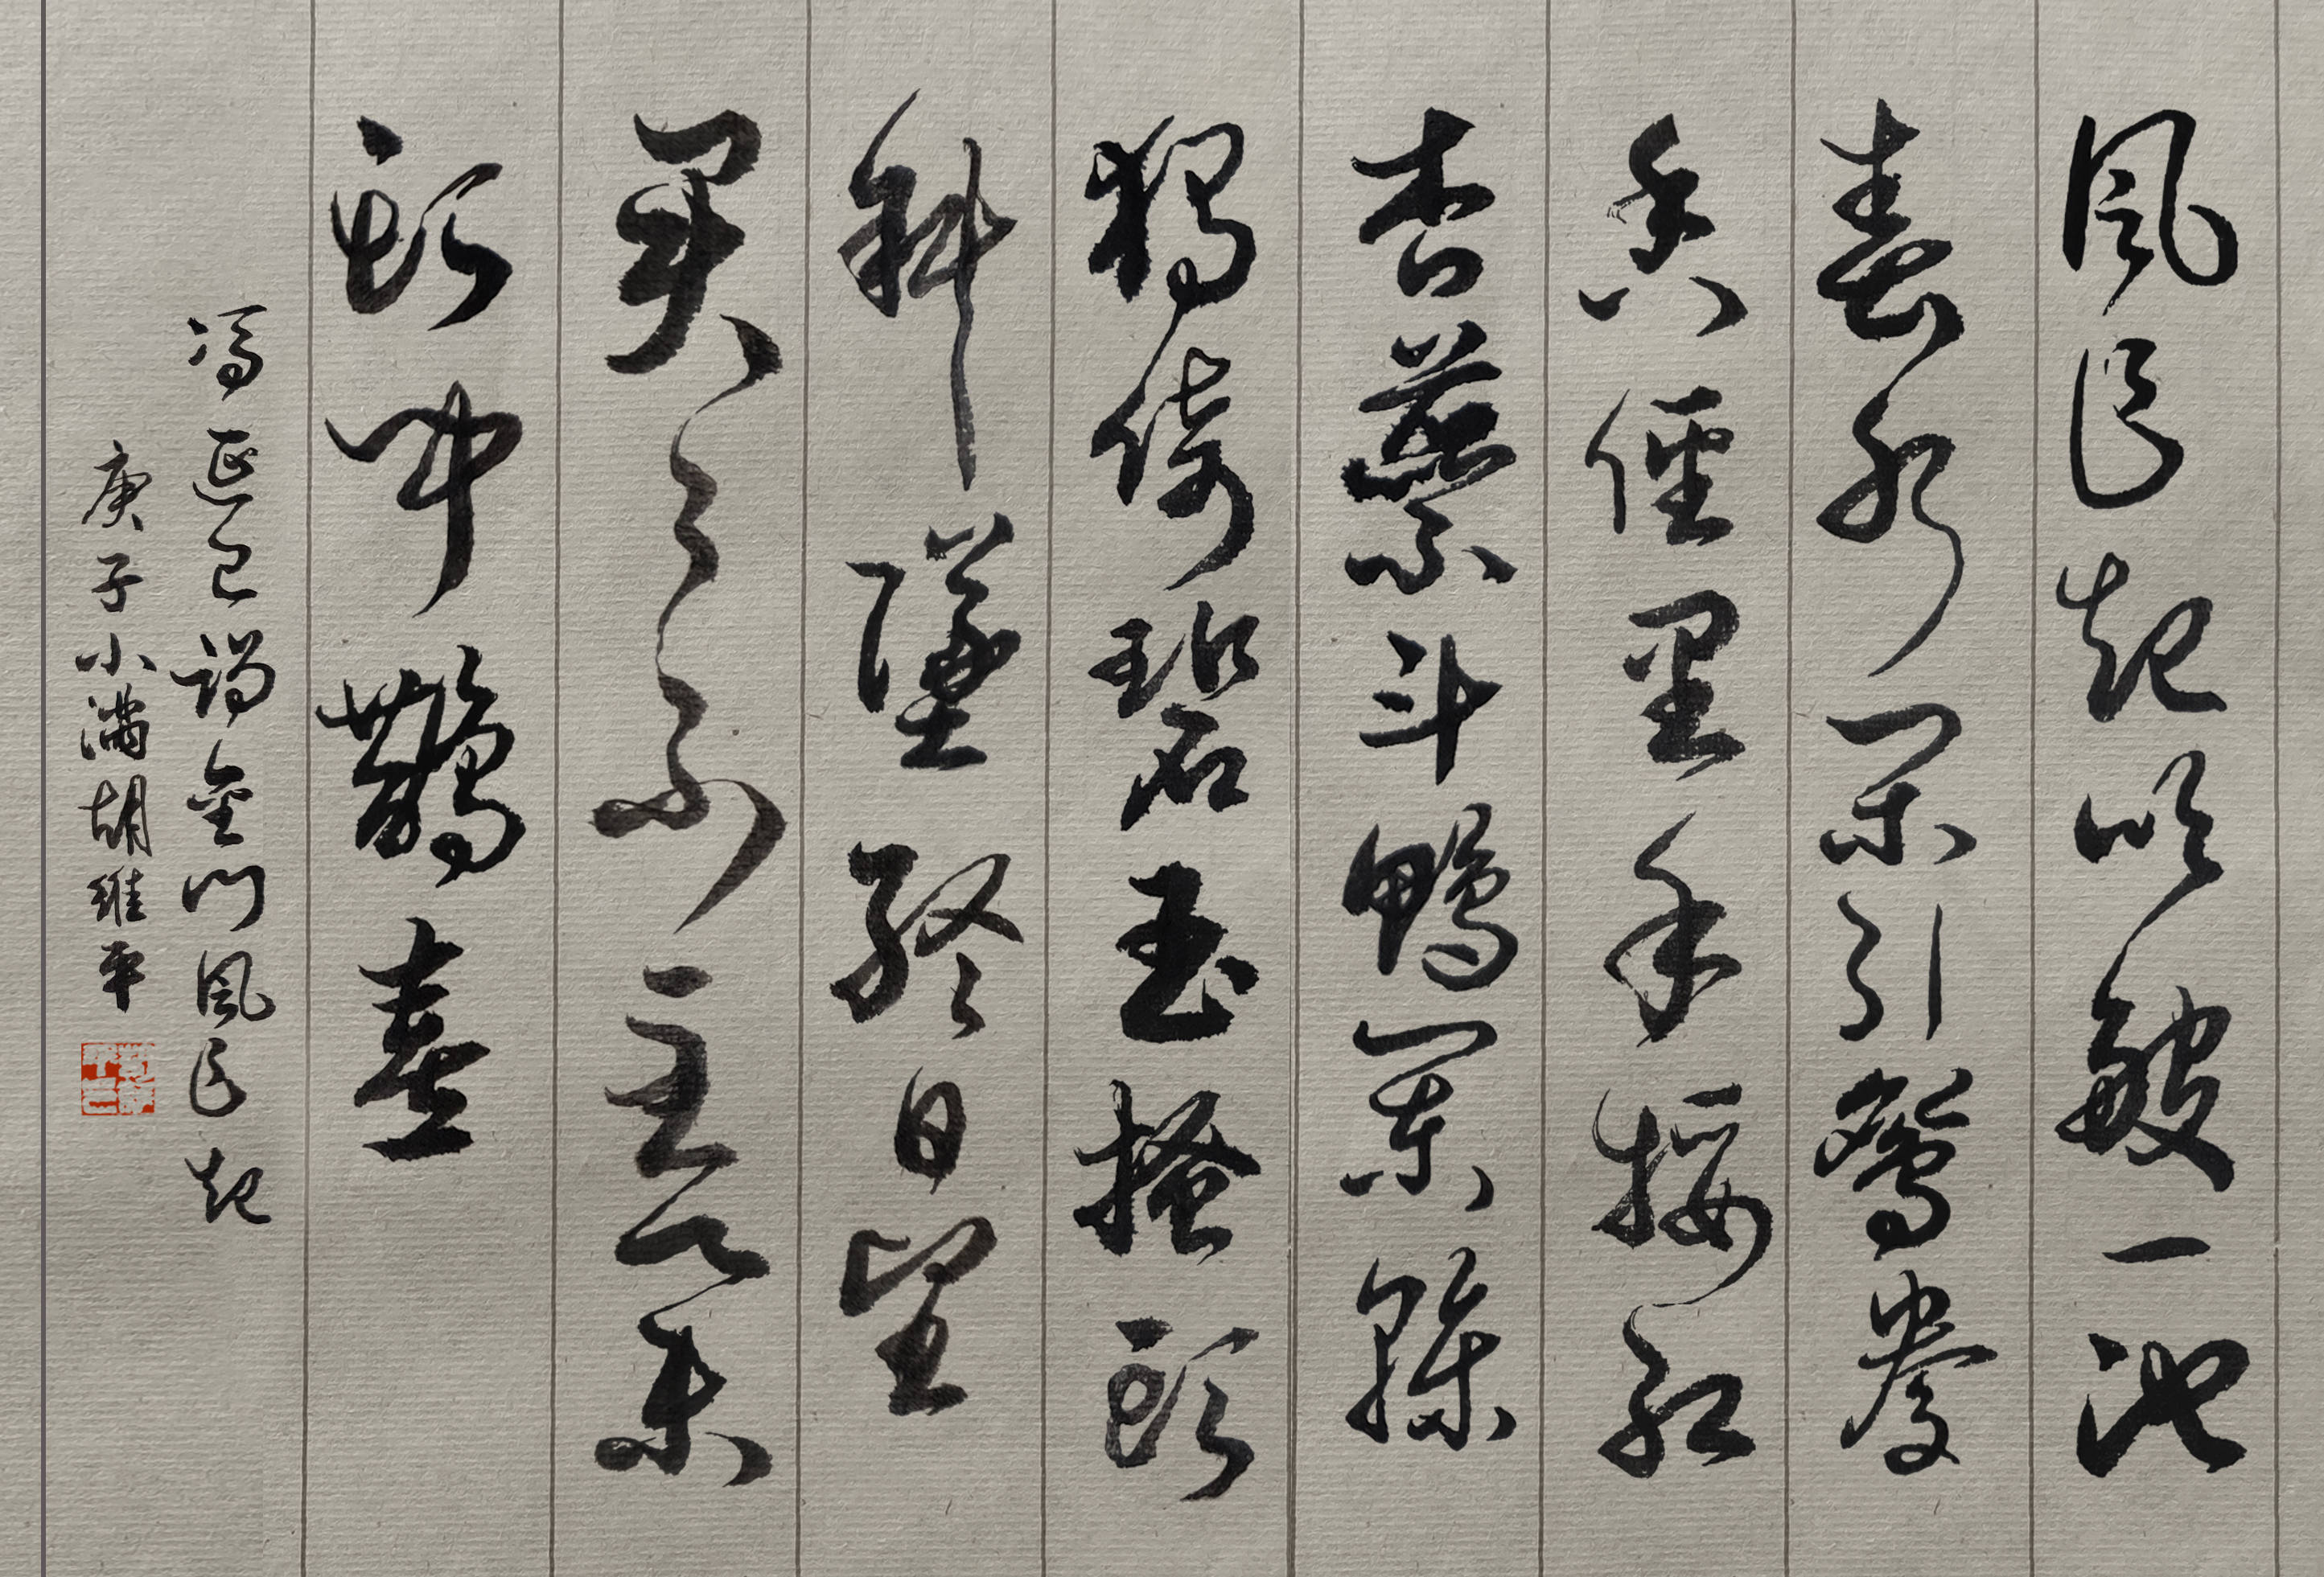 風乍起吹皺一池
春水閑引鴛鴦
香徑裏手挼紅
杏蘂鬥鴨闌干
獨倚碧玉搔頭
斜墜終日望
君君不至舉
頭聞鵲喜
馮延巳謁金門風乍起
庚子小滿胡維平